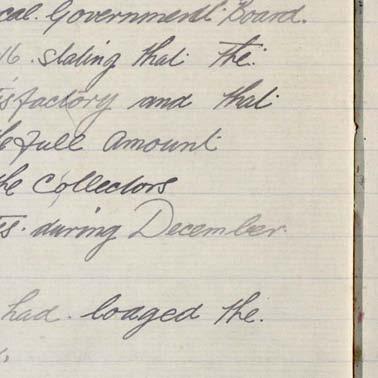 cal. Government Board.
16. stating that the
isfactory and that
he full amount
the Collectors
es. during December.
had. loaged the.